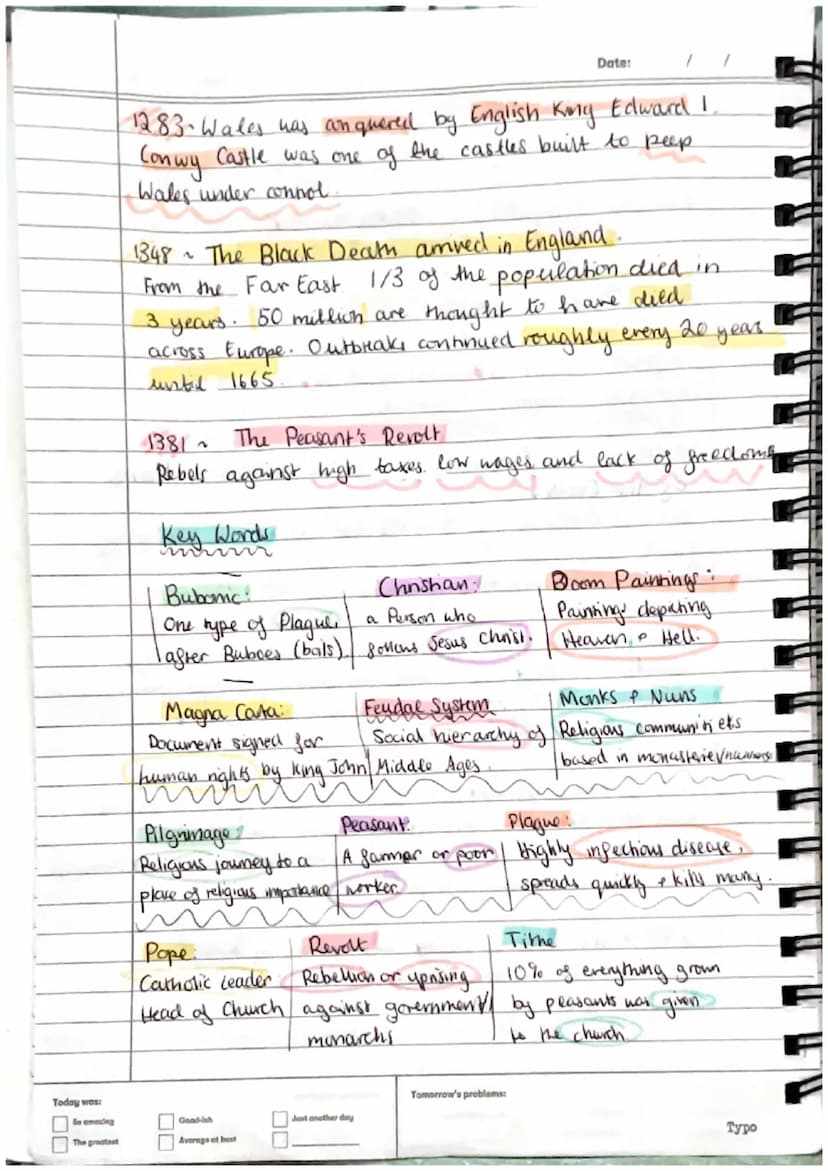 Date: / /
1283. Wales was anquered by English King Edward I.
Conwy Castle was one of the castles built to peep
Wales under control.
1348 ~ The Black Death arrived in England.
From the Far East 1/3 of the population died in
3 years. 50 million are thought to have died
across Europe. Outbreaks continued roughly every 20 years
until 1665.
1381 ~ The Peasant's Revolt
Rebels against high taxes. low wages and lack of freedoms
Key Words
Bubonic:
One type of Plague,
after Buboes (boils)
Christian:
a Person who
follows Jesus Christ.
Doom Paintings:
Paintings depicting
Heaven & Hell.
Magna Carta:
Document signed for
human rights by King John
Feudal System
Social hierarchy of
Middle Ages.
Monks & Nuns
Religious communities
based in monasteries/nunneries
Pilgrimage:
Religious journey to a
place of religious importance
Peasant:
A farmer or poor
worker
Plague:
Highly infectious disease,
spreads quickly & kills many.
Pope:
Catholic Leader
Head of Church
Revolt
Rebellion or uprising
against government/
monarchs
Tithe
10% of everything grown
by peasants was given
to the church
Today was:
So amazing
Good-ish
Just another day
The greatest
Average at best
Tomorrow's problems:
Typo